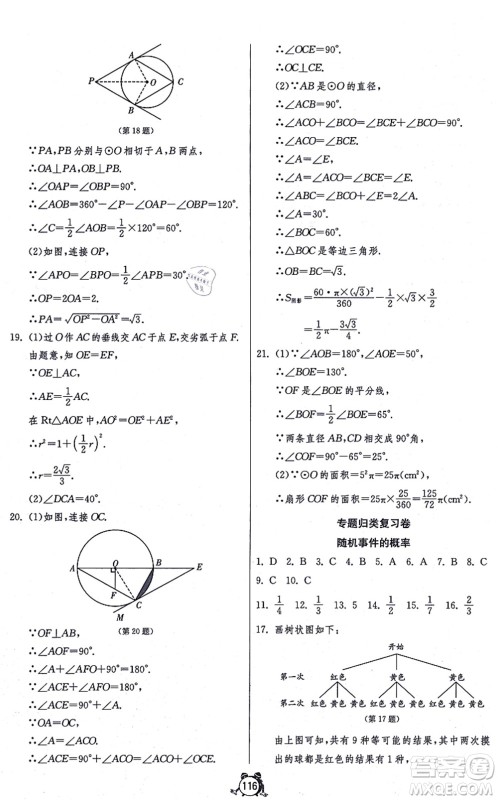 A
P
O
C
B
(第18题)
∵PA,PB分别与⊙O相切于A,B两点,
∴OA⊥PA,OB⊥PB.
∴∠OAP=∠OBP=90°.
∴∠AOB=360°-∠P-∠OAP-∠OBP=120°.
∴∠C=1/2∠AOB=1/2×120°=60°.
(2)如图,连接OP,
∵∠APO=∠BPO=1/2∠APB=30°.
∴OP=2.
∴PA=√(OP²-OA²)=√3.
19. (1)过O作AC的垂线交AC于点E,交劣弧于点F.
由题意,知OE=EF.
∵OE⊥AC,
∴AE=1/2AC.
在Rt△AOE中,AO²=OE²+AE²,
∴r²=1+(1/2r)².
∴r=2√3/3.
(2)∠DCA=40°.
20. (1)如图,连接OC.
A
O
B
E
F
C
M
(第20题)
∵OF⊥AB,
∴∠AOF=90°.
∴∠A+∠AFO=90°.
∵∠ACE+∠AFO=180°,
∴∠ACE=90°+∠A.
∵OA=OC,
∴∠A=∠ACO.
∴∠ACE=90°+∠ACO=∠ACO+∠OCE.
∴∠OCE=90°.
∴OC⊥CE.
(2)∵AB是⊙O的直径,
∴∠ACB=90°.
∴∠ACO+∠BCO=90°.
∵∠BCE+∠BCO=90°,
∴∠ACO=∠BCE.
∵∠A=∠E,
∴∠A=∠ACO=∠BCE=∠E.
∴∠ABC=∠BCE+∠E=2∠A.
∴∠A=30°.
∴∠BOC=60°.
∴△BOC是等边三角形.
∴OB=BC=√3.
∴S阴影=60·π×(√3)²/360-1/2×√3×3/2
=1/2π-3√3/4.
21. (1)∵∠AOB=180°,∠AOE=50°,
∴∠BOE=130°.
∵OF是∠BOE的平分线,
∴∠BOF=1/2∠BOE=65°.
∵两条直径AB,CD相互垂直,
∴∠COF=90°-65°=25°.
(2)∵⊙O的面积=5²π=25π(cm²),
∴扇形COF的面积=25π×25/360=125/72π(cm²).
专题归类复习卷
随机事件的概率
1. D 2. B 3. D 4. C 5. D 6. C 7. D 8. B
9. C 10. C
11. 1/4 12. 3/4 13. 5 14. 1/4 15. 1/4 16. 2/3
17. 画树状图如下:
开始
第一次 红色 黄色 黄色
第二次 红色 黄色 黄色 红色 黄色 黄色 红色 黄色 黄色
(第17题)
由上图可知,共有9种等可能的结果,其中两次
摸出的球都是红色的结果有1种,
116